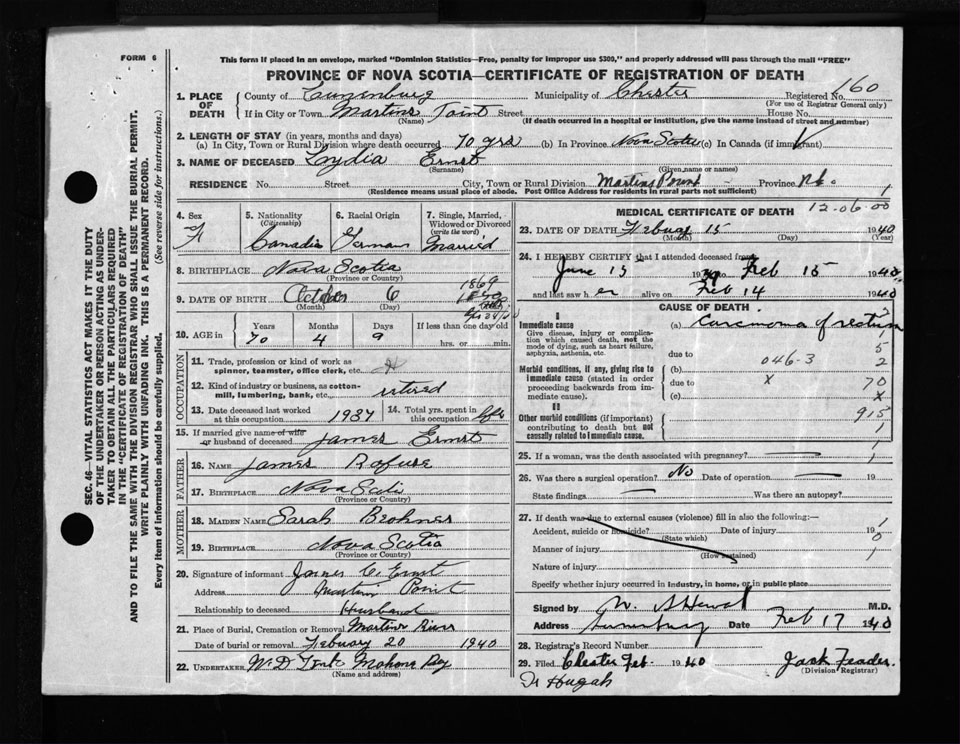 FORM 6
This form if placed in an envelope, marked "Dominion Statistics—Free, penalty for improper use $300," and properly addressed will pass through the mail "FREE"
PROVINCE OF NOVA SCOTIA—CERTIFICATE OF REGISTRATION OF DEATH
160
1. PLACE OF DEATH County of Lunenburg Municipality of Chester Registered No.
(For use of Registrar General only)
If in City or Town Martins Point Street House No.
(Name) (If death occurred in a hospital or institution, give the name instead of street and number)
2. LENGTH OF STAY (in years, months and days)
(a) In City, Town or Rural Division where death occurred 70 yrs (b) In Province Nova Scotia (c) In Canada (if immigrant)
3. NAME OF DECEASED Lydia Ernst
(Surname) (Given name or names)
RESIDENCE No. Street City, Town or Rural Division Martins Point Province N.S.
(Residence means usual place of abode. Post Office Address for residents in rural parts not sufficient)
4. Sex F
5. Nationality (Citizenship) Canadia
6. Racial Origin German
7. Single, Married, Widowed or Divorced (write the word) Married
8. BIRTHPLACE Nova Scotia
(Province or Country)
1869
9. DATE OF BIRTH October 6
(Month) (Day)
10. AGE in Years Months Days If less than one day old
70 4 9 hrs. or min.
OCCUPATION
11. Trade, profession or kind of work as spinner, teamster, office clerk, etc.
12. Kind of industry or business, as cotton-mill, lumbering, bank, etc. retired
13. Date deceased last worked at this occupation 1937 14. Total yrs. spent in this occupation life
15. If married give name of wife or husband of deceased James Ernst
FATHER
16. NAME James Rafuse
17. BIRTHPLACE Nova Scotia
(Province or Country)
MOTHER
18. MAIDEN NAME Sarah
19. BIRTHPLACE Nova Scotia
(Province or Country)
20. Signature of informant James C. Ernst
Address Martin Point
Relationship to deceased Husband
21. Place of Burial, Cremation or Removal Martins River
Date of burial or removal Febuary 20 1940
22. UNDERTAKER Mahone Bay
(Name and address)
MEDICAL CERTIFICATE OF DEATH 12-06-00
1
23. DATE OF DEATH Febuary 15 1940
(Month) (Day) (Year)
24. I HEREBY CERTIFY that I attended deceased from
June 15 1939 to Feb 15 1940
and last saw her alive on Feb 14 1940
CAUSE OF DEATH
I
Immediate cause (a) Carcinoma of rectum
Give disease, injury or complication which caused death, not the mode of dying, such as heart failure, asphyxia, asthenia, etc.
due to 046-3
Morbid conditions, if any, giving rise to immediate cause (stated in order proceeding backwards from immediate cause).
(b) x
due to
(c)
II
Other morbid conditions (if important) contributing to death but not causally related to immediate cause.
5
2
70
x
915
1
1
25. If a woman, was the death associated with pregnancy?
26. Was there a surgical operation? No Date of operation 19
State findings Was there an autopsy?
27. If death was due to external causes (violence) fill in also the following:—
Accident, suicide or homicide? Date of injury 19
(State which)
Manner of injury
(How sustained)
Nature of injury
1
0
1
Specify whether injury occurred in industry, in home, or in public place
Signed by M.D.
Address Lunenburg Date Feb 17 1940
28. Registrar's Record Number
29. Filed Chester Feb. 1940 Jack Feader.
(Division Registrar)
SEC. 46—VITAL STATISTICS ACT MAKES IT THE DUTY
OF THE UNDERTAKER OR PERSON ACTING AS UNDER-
TAKER TO OBTAIN ALL THE PARTICULARS REQUIRED
IN THE "CERTIFICATE OF REGISTRATION OF DEATH"
AND TO FILE THE SAME WITH THE DIVISION REGISTRAR WHO SHALL ISSUE THE BURIAL PERMIT.
WRITE PLAINLY WITH UNFADING INK. THIS IS A PERMANENT RECORD.
Every item of information should be carefully supplied. (See reverse side for instructions.)